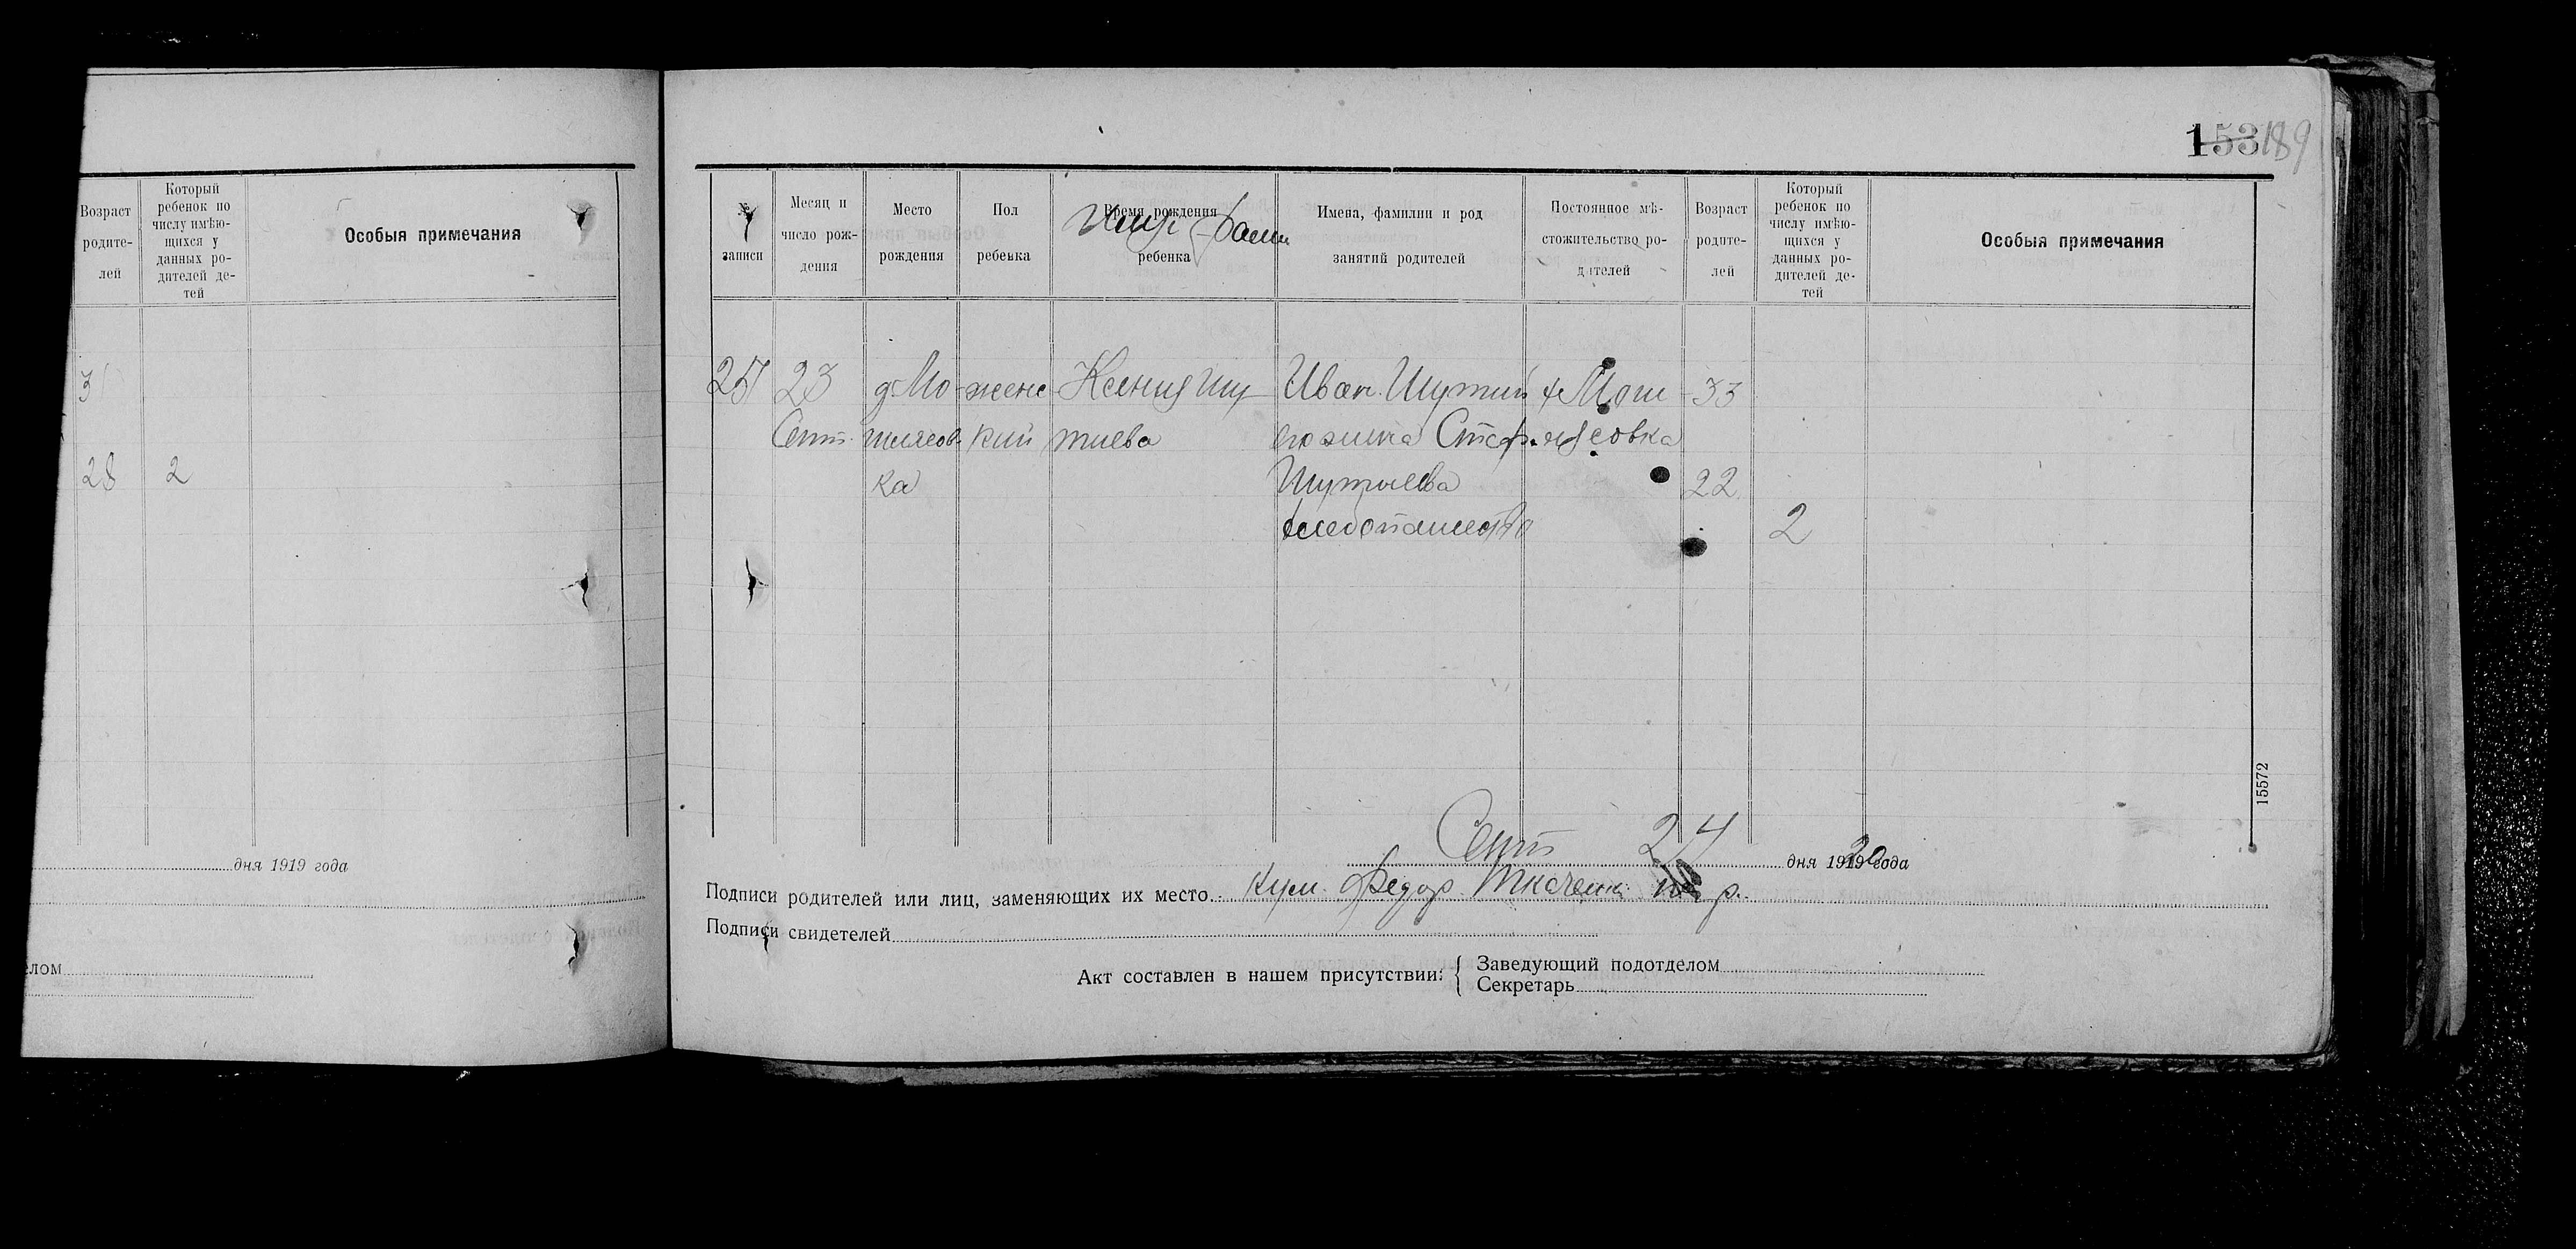 Возраст родите- лей
Который ребенок по числу имѣю- щихся у данных ро- дителей де- тей
Особыя примечания
3
28 2
дня 1919 года
елом
153 189
№ записи
Месяц и число рож- дения
Место рождения
Пол ребенка
Время рождения ребенка
Имя Фами
Имена, фамилии и род занятий родителей
Постоянное мѣ- стожительство ро- дителей
Возраст родите- лей
Который ребенок по числу имѣю- щихся у данных ро- дителей де- тей
Особыя примечания
25 23 д. Мо- женс Ксения Шу Иван Шутий 33
Сент. кий тиева
ка Шутиева 22
хлебопашество 2
15572
Сент 24 дня 1919 20 года
Подписи родителей или лиц, заменяющих их место Кум Федор Ткаченко
Подписи свидетелей
Акт составлен в нашем присутствии: { Заведующий подотделом
Секретарь